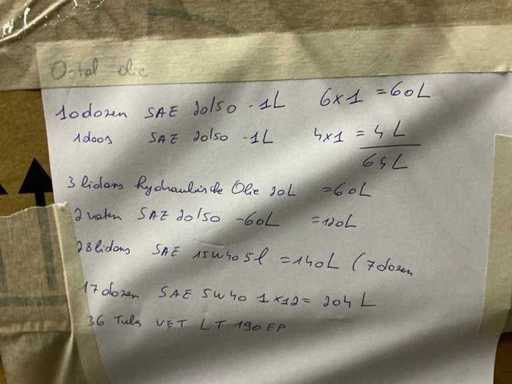 Ostal olie
10 dozen SAE 20/50 - 1L 6x1 = 60L
1 doos SAE 20/50 - 1L 4x1 = 4L
64L
3 bidons hydraulische Olie 20L = 60L
2 vaten SAE 20/50 - 60L = 120L
28 bidons SAE 15W40 5l = 140L (7 dozen
17 dozen SAE 5W40 1x12 = 204L
36 Tubs VET LT 190 EP